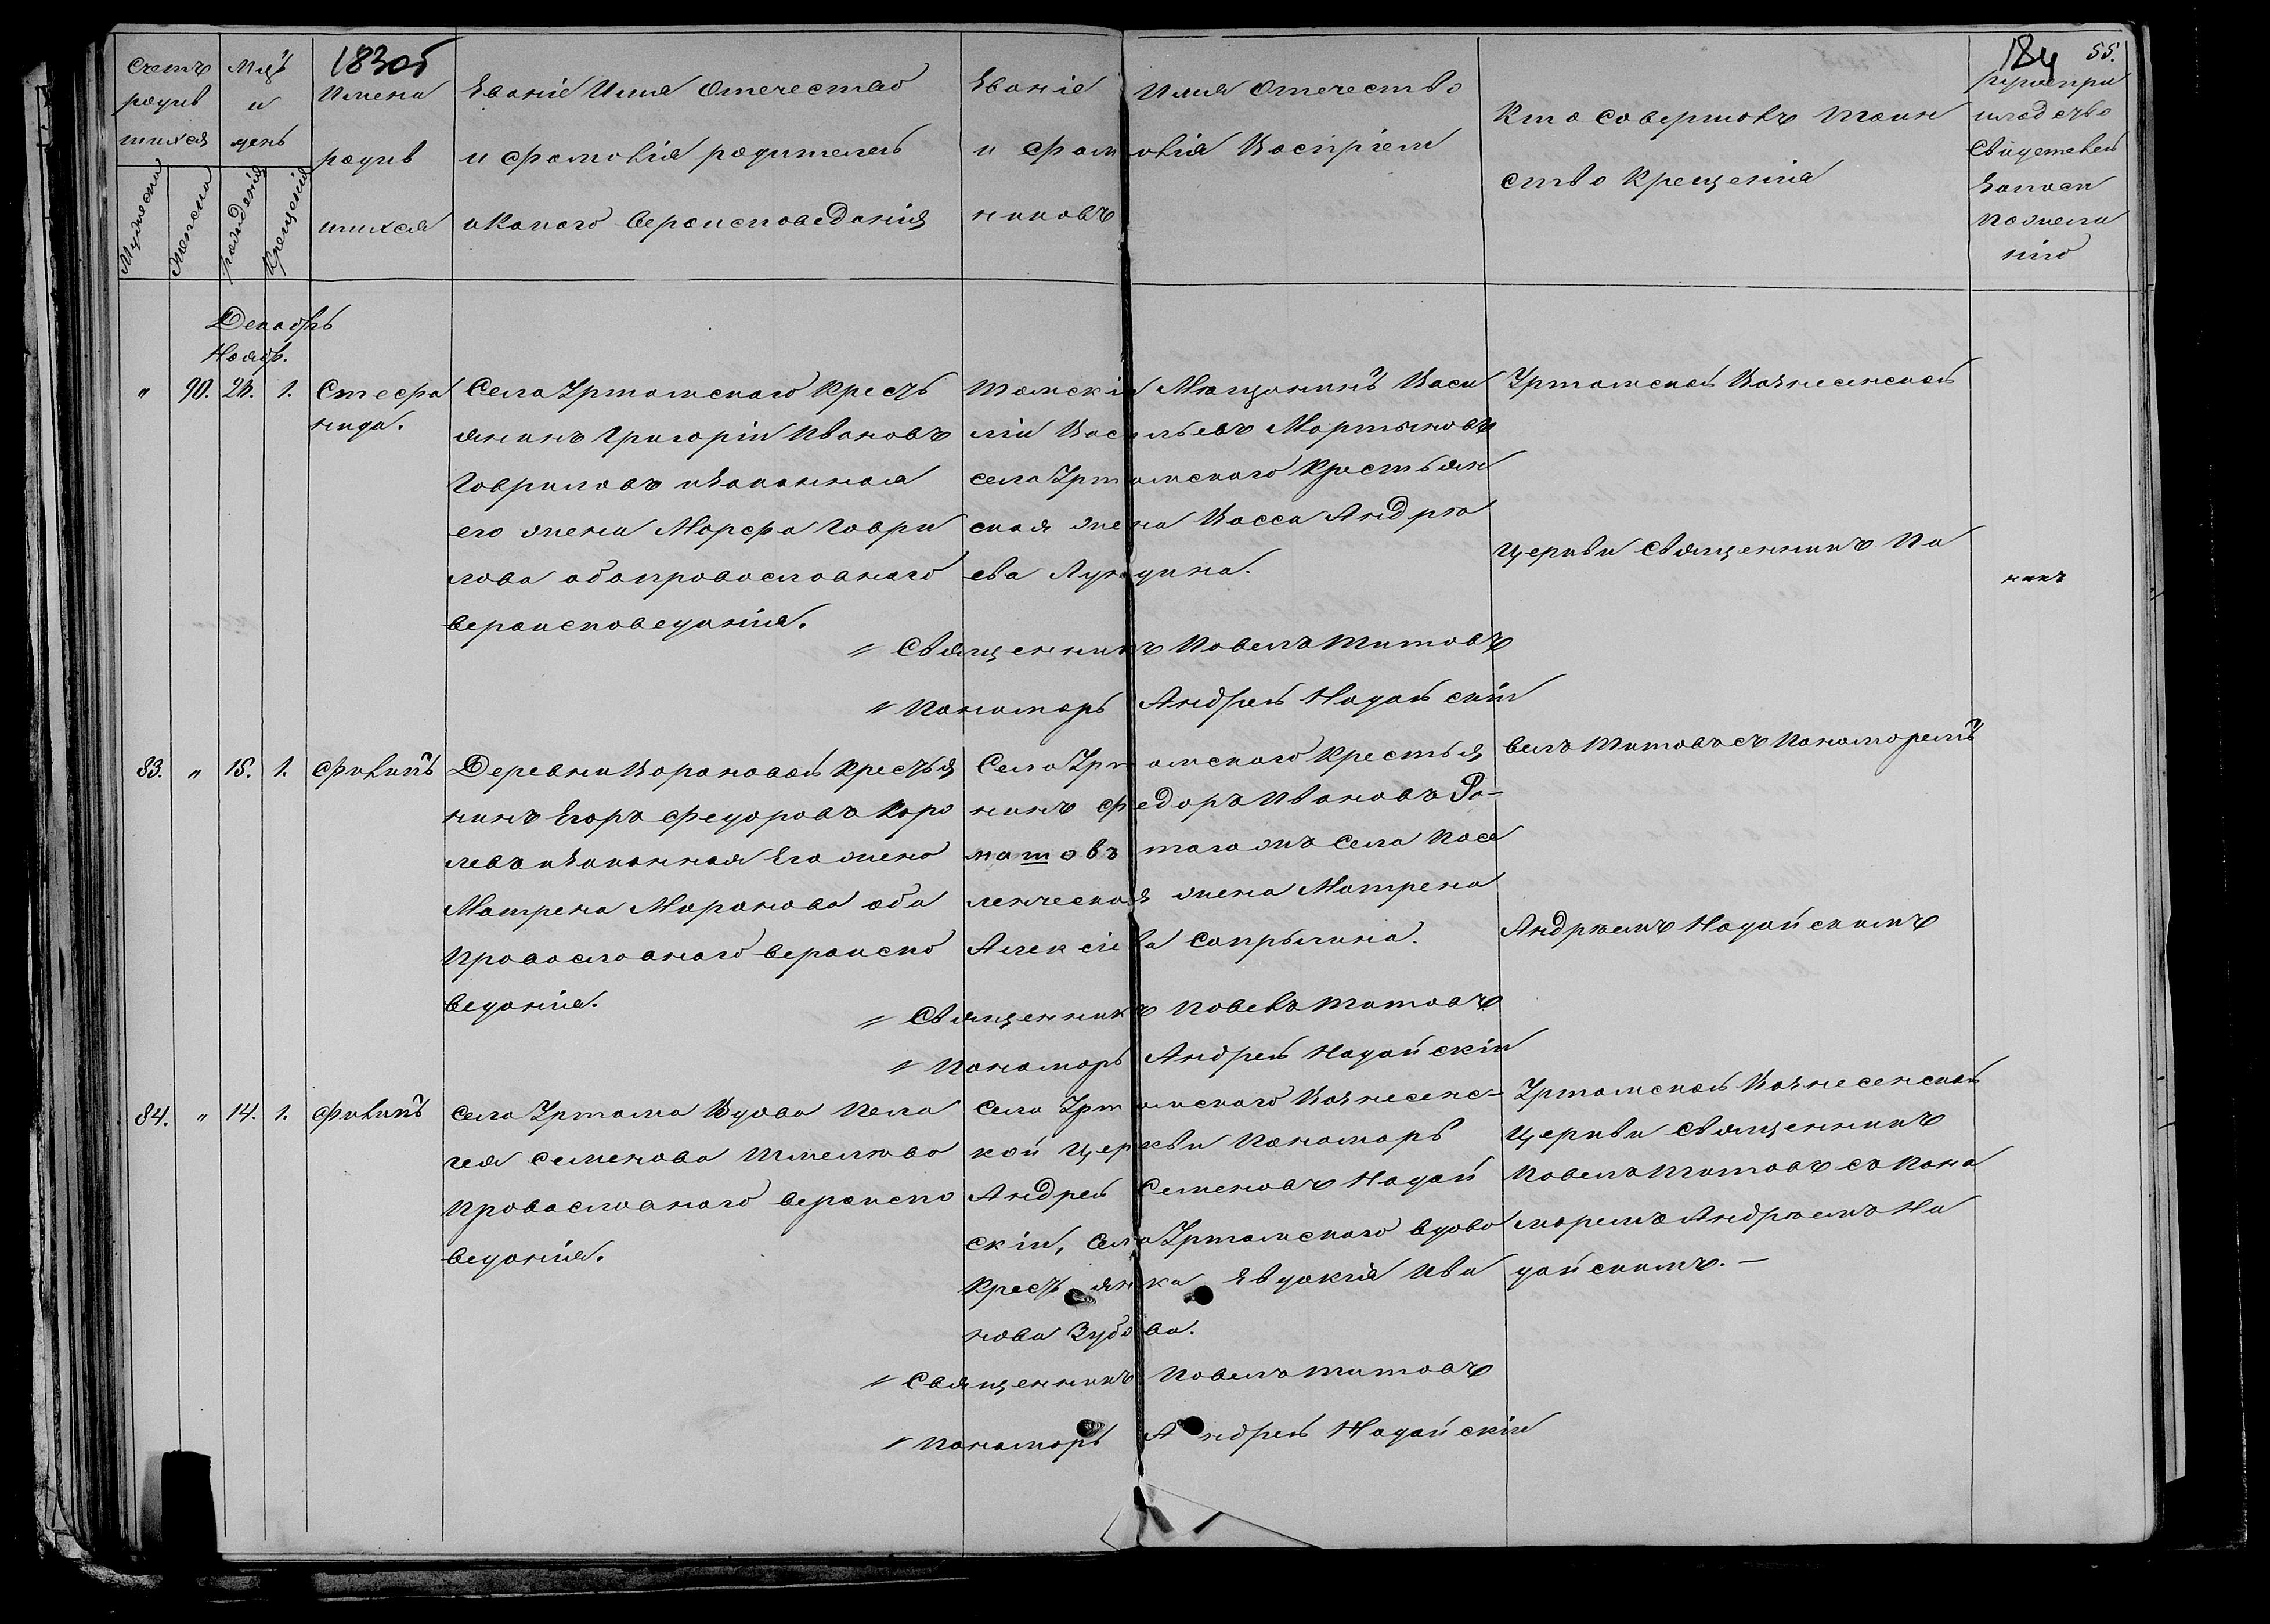 183об
184
55.
Счетъ
родив
шихся
Мужеска
Женска
Мцъ
и
день
рожденія
Крещенія
Имена
родив
шихся
Званіе Имя Отечество
и фамилія родителей
и Какого вероисповеданія
Званіе Имя Отечество
и Фамилія Воспріем
никовъ
Кто совершалъ Таин
ство Крещенія
рукопри
кладство
Свидетелей
Записи
По жела
нію
Декабрь
Ноябр.
" 90. 26. 1. Стефа
нида.
Села Уртамского Кресть
янинъ Григорій Ивановъ
Гавриловъ и Законная
его жена Марфа Гаври
лова оба православнаго
вероисповеданія.
Томскій Мещанинъ Васи
лій Васильевъ Мартыновъ
села Уртамского Крестьян
ская жена Васса Андрѣ
ева Лундина.
Уртамской Вознесенской
Церкви священникъ Па
никъ
" Священникъ Павелъ Титовъ
" Пономарь Андрей Надайскій
83. " 15. 1. Филипъ
Деревни Вороновой Крестья
нинъ Егоръ Федоровъ Коро
левъ и Законная Его жена
Матрена Миронова оба
Православнаго вероиспо
веданія.
Села Уртамского Крестья
нинъ Федоръ Ивановъ Ро-
матовъ того жъ Села Посе
ленческая жена Матрена
Алексіева Сапрыкина.
велъ Титовъ съ Пономаремъ
Андрѣемъ Надайскимъ
" Священникъ Павелъ Титовъ
" Пономарь Андрей Надайскій
84. " 14. 1. Филипъ
Села Уртама Вдова Пела
гея Семенова Шмелева
Православнаго вероиспо
веданія.
Села Уртамского Вознесенс-
кой Церкви Пономарь
Андрей Семеновъ Надай
скій, Села Уртамского вдова
Крестьянка Явдокія Ива
нова Зубова.
Уртамской Вознесенской
Церкви Священникъ
Павелъ Титовъ съ Поно
маремъ Андрѣемъ На
дайскимъ. —
" Священникъ Павелъ Титовъ
" Пономарь Андрей Надайскій